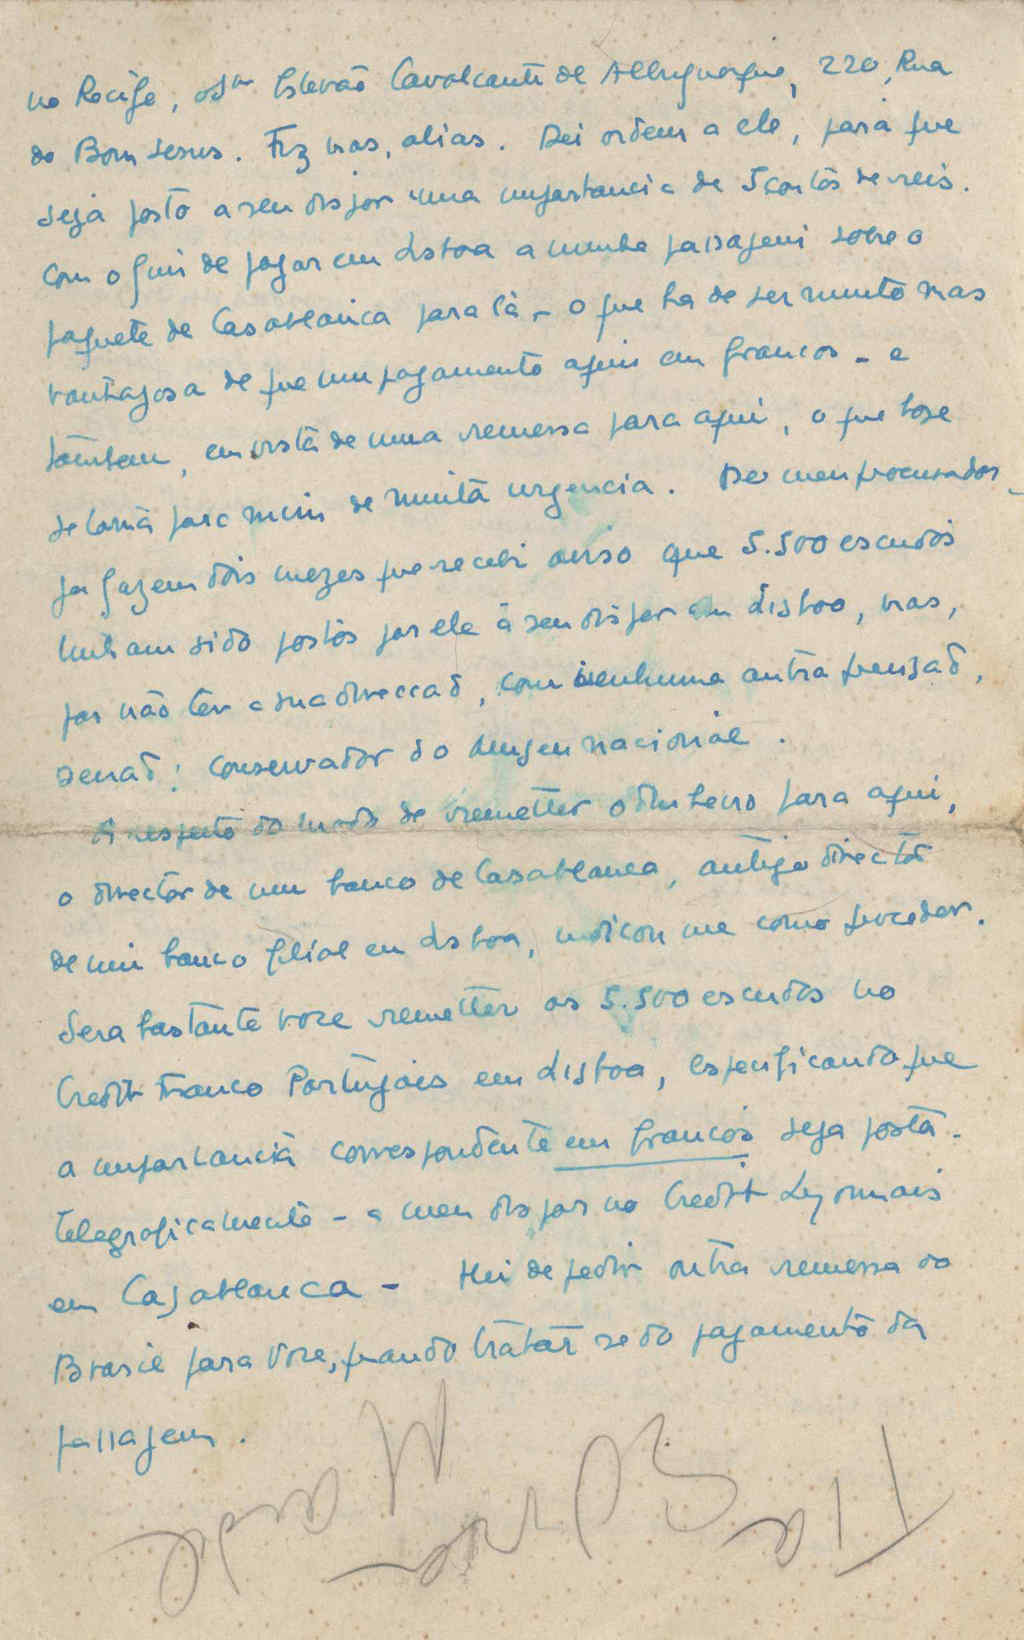 no Recife, o Snr Estevão Cavalcanti de Albuquerque, 220, Rua
do Bom Jesus. Fiz mas, alias. Dei ordem a ele, para que
seja posto a seu dispor uma importancia de 5 contos de reis.
com o fim de pagar em Lisboa a minha passagem sobre o
paquete de Casablanca para là – o que ha de ser muito mas
vantajosa de que um pagamento aqui em francos – e
tambem, em vista de uma remessa para aqui, o que hoje
se torna para mim de muita urgencia. Do meu procurador
ja fazem dois mezes que recebi aviso que 5.500 escudos
tinham sido postos por ele à seu dispor em Lisboa, mas,
por não ter a sua direccaõ, com nenhuma outra
senaõ: Conservador do Museu nacional.
A respeito do modo de remetter o dinheiro para aqui,
o director de um banco de Casablanca, antigo director
de um banco filial em Lisboa, indicou me como proceder.
Sera bastante voce remetter os 5.500 escudos no
Credit Franco Portugais em Lisboa, especificando que
a importancia correspondente em francos seja posta –
telegraficamente – a meu dispor no Credit Lyonnais
em Casablanca – Hei de pedir outra remessa do
Brasil para Voce, quando tratar se do pagamento da
passagem.